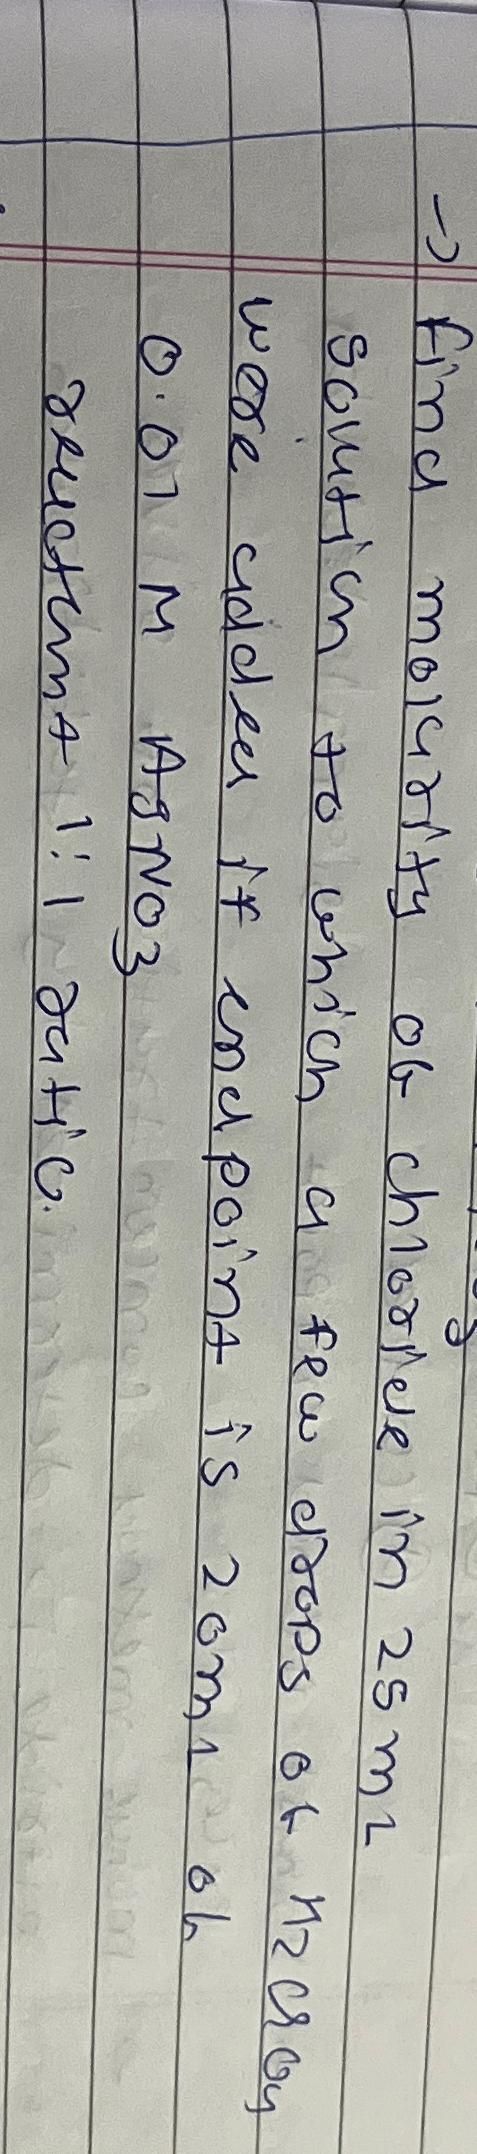 → find molarity of chloride in 25 ml
solution to which a few drops of K2CrO4
were added if endpoint is 20 ml of
0.01 M AgNO3
reactant 1:1 ratio.